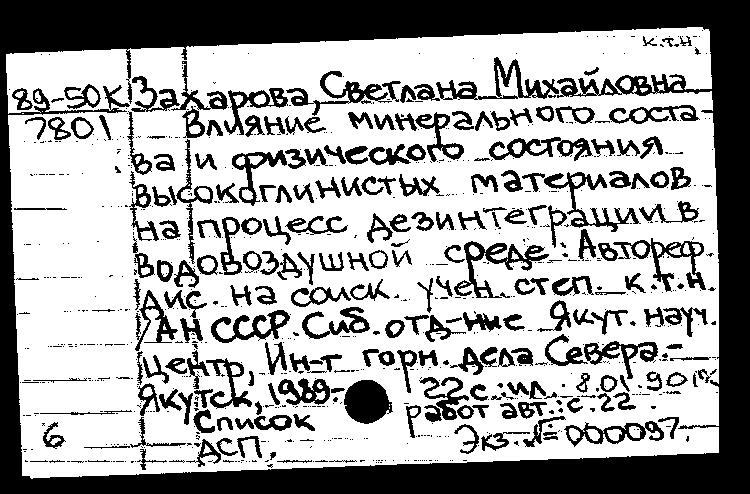 к.т.н.
89-50К Захарова, Светлана Михайловна
7801 Влияние минерального соста-
ва и физического состояния
высокоглинистых материалов
на процесс дезинтеграции в
водовоздушной среде : Автореф.
дис. на соиск. учен. степ. к.т.н.
/АН СССР. Сиб. отд-ние Якут. науч.
центр, Ин-т горн. дела Севера.-
Якутск, 1989.- 22 с.:ил. 8.01.90
Список работ авт.:с.22.
6 ДСП. Экз. №=000097.